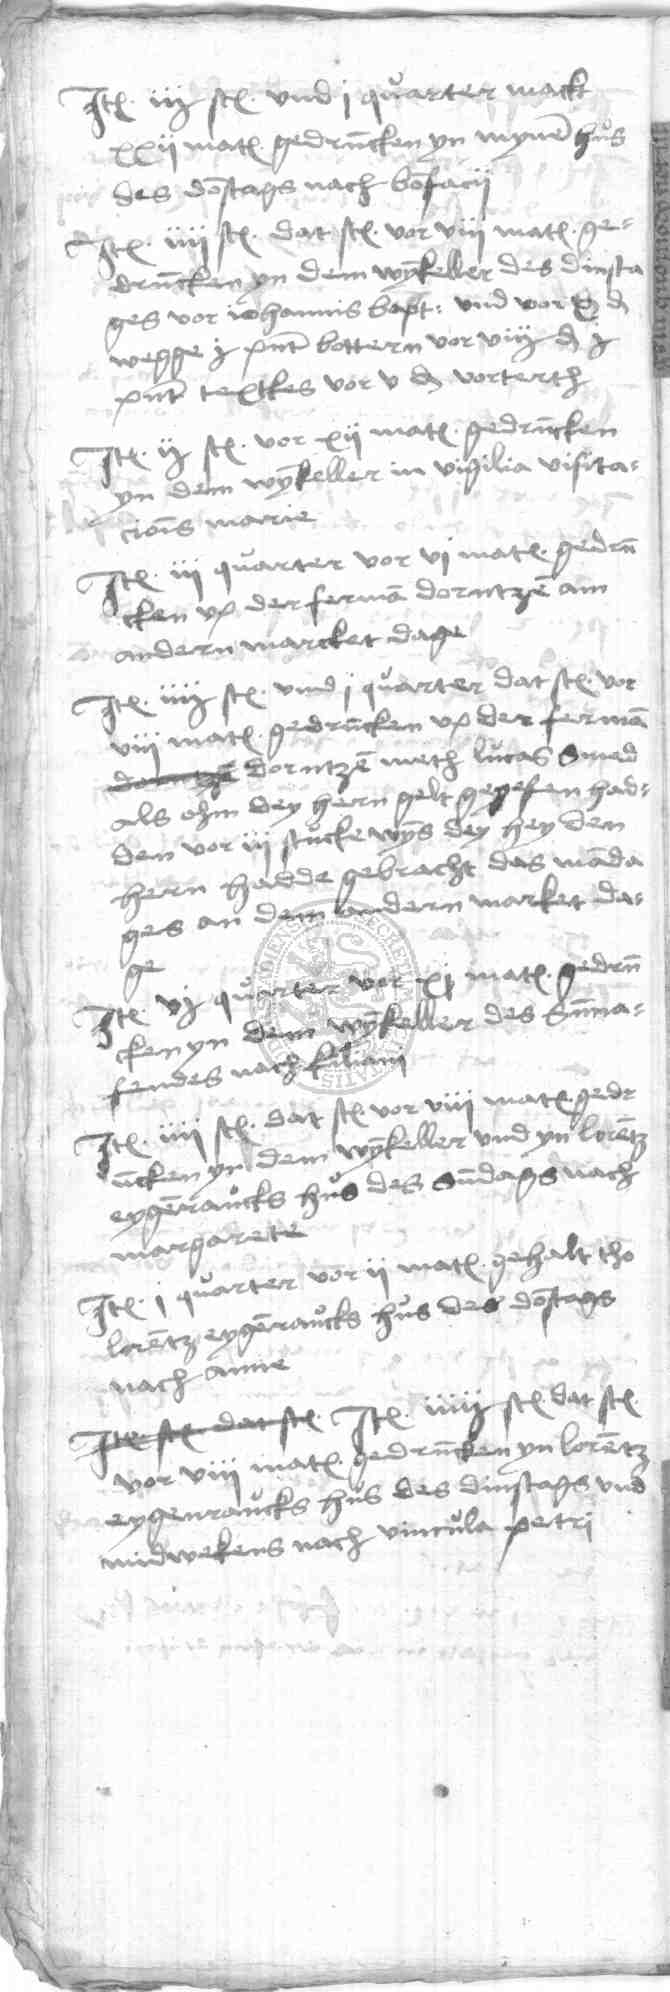 Ite. iij ste. vnd j quarter mack
xxii mate. gedruncken yn myne hus
des dostags nach bofacij
Ite. iiij ste. dat ste. vor viii mate. ge-
druncken yn dem wykeller des dinsta
ges vor iohannis bapt: vnd vor
wegge j punt bottern vor viij d j
punt vor v d vorterth
Ite. ij ste. vor xii mate. gedruncken
yn dem wykeller in vigilia visita-
ciois marie
Ite. iij quarter vor vi mate. gedrun
cken vp der ferwa dorntze am
andern marcket dage
Ite. iiij ste. vnd j quarter dat ste. vor
viii mate. gedruncken vp der ferwa
dorntze dorntze meth lucas smed
als ohm dey hern gelt gegefen had-
den vor iii stucke wys dey hey den
hern hadde gebracht das mada
ges an dem andern market da-
ge
Ite. vj quarter vor xj mate. gedrun
cken yn dem wykeller des Suna-
fendes nach kiliani
Ite. iiij ste. dat ste. vor viii mate. gedr
uncken yn dem wykeller vnd yn loretz
eygeraucks hus des sudags nach
margarete
Ite. j quarter vor ii mate. gehalt tho
loretz eygeraucks hus des dostags
nach anne
Ite. ste. dat ste. Ite. iiiij ste. dat ste.
vor viii mate. gedruncken yn loretz
eygenraucks hus des dinstags vnd
midwekens nach vincula petri